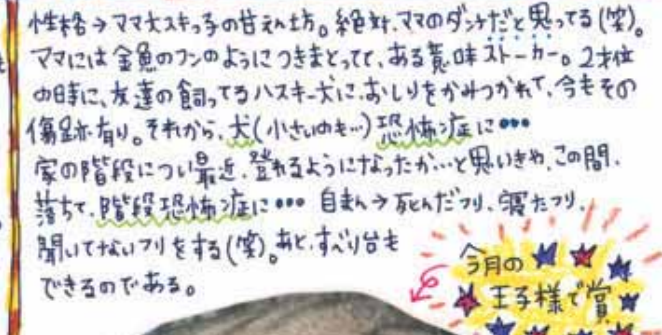 性格→ママ大スキっ子の甘えん坊。絶対、ママのダンナだと思ってる(笑)。
ママには金魚のフンのようにつきまとってて、ある意味ストーカー。2才位
の時に、友達の飼ってるハスキー犬に、おしりをかみつかれて、今もその
傷跡有り。それから、犬(小さいのも…)恐怖症に•••
家の階段につい最近、登れるようになったか…と思いきや、この間、
落ちて、階段恐怖症に••• 自まん→死んだフリ、寝たフリ、
聞いてないフリをする(笑)。あと、すべり台も
できるのである。
今月の
王子様で賞